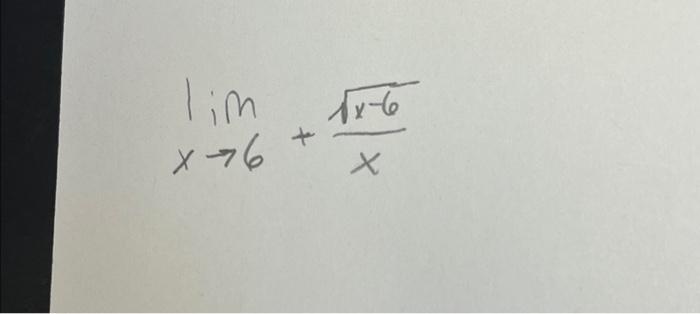 lim
x→6 + √x-6/x